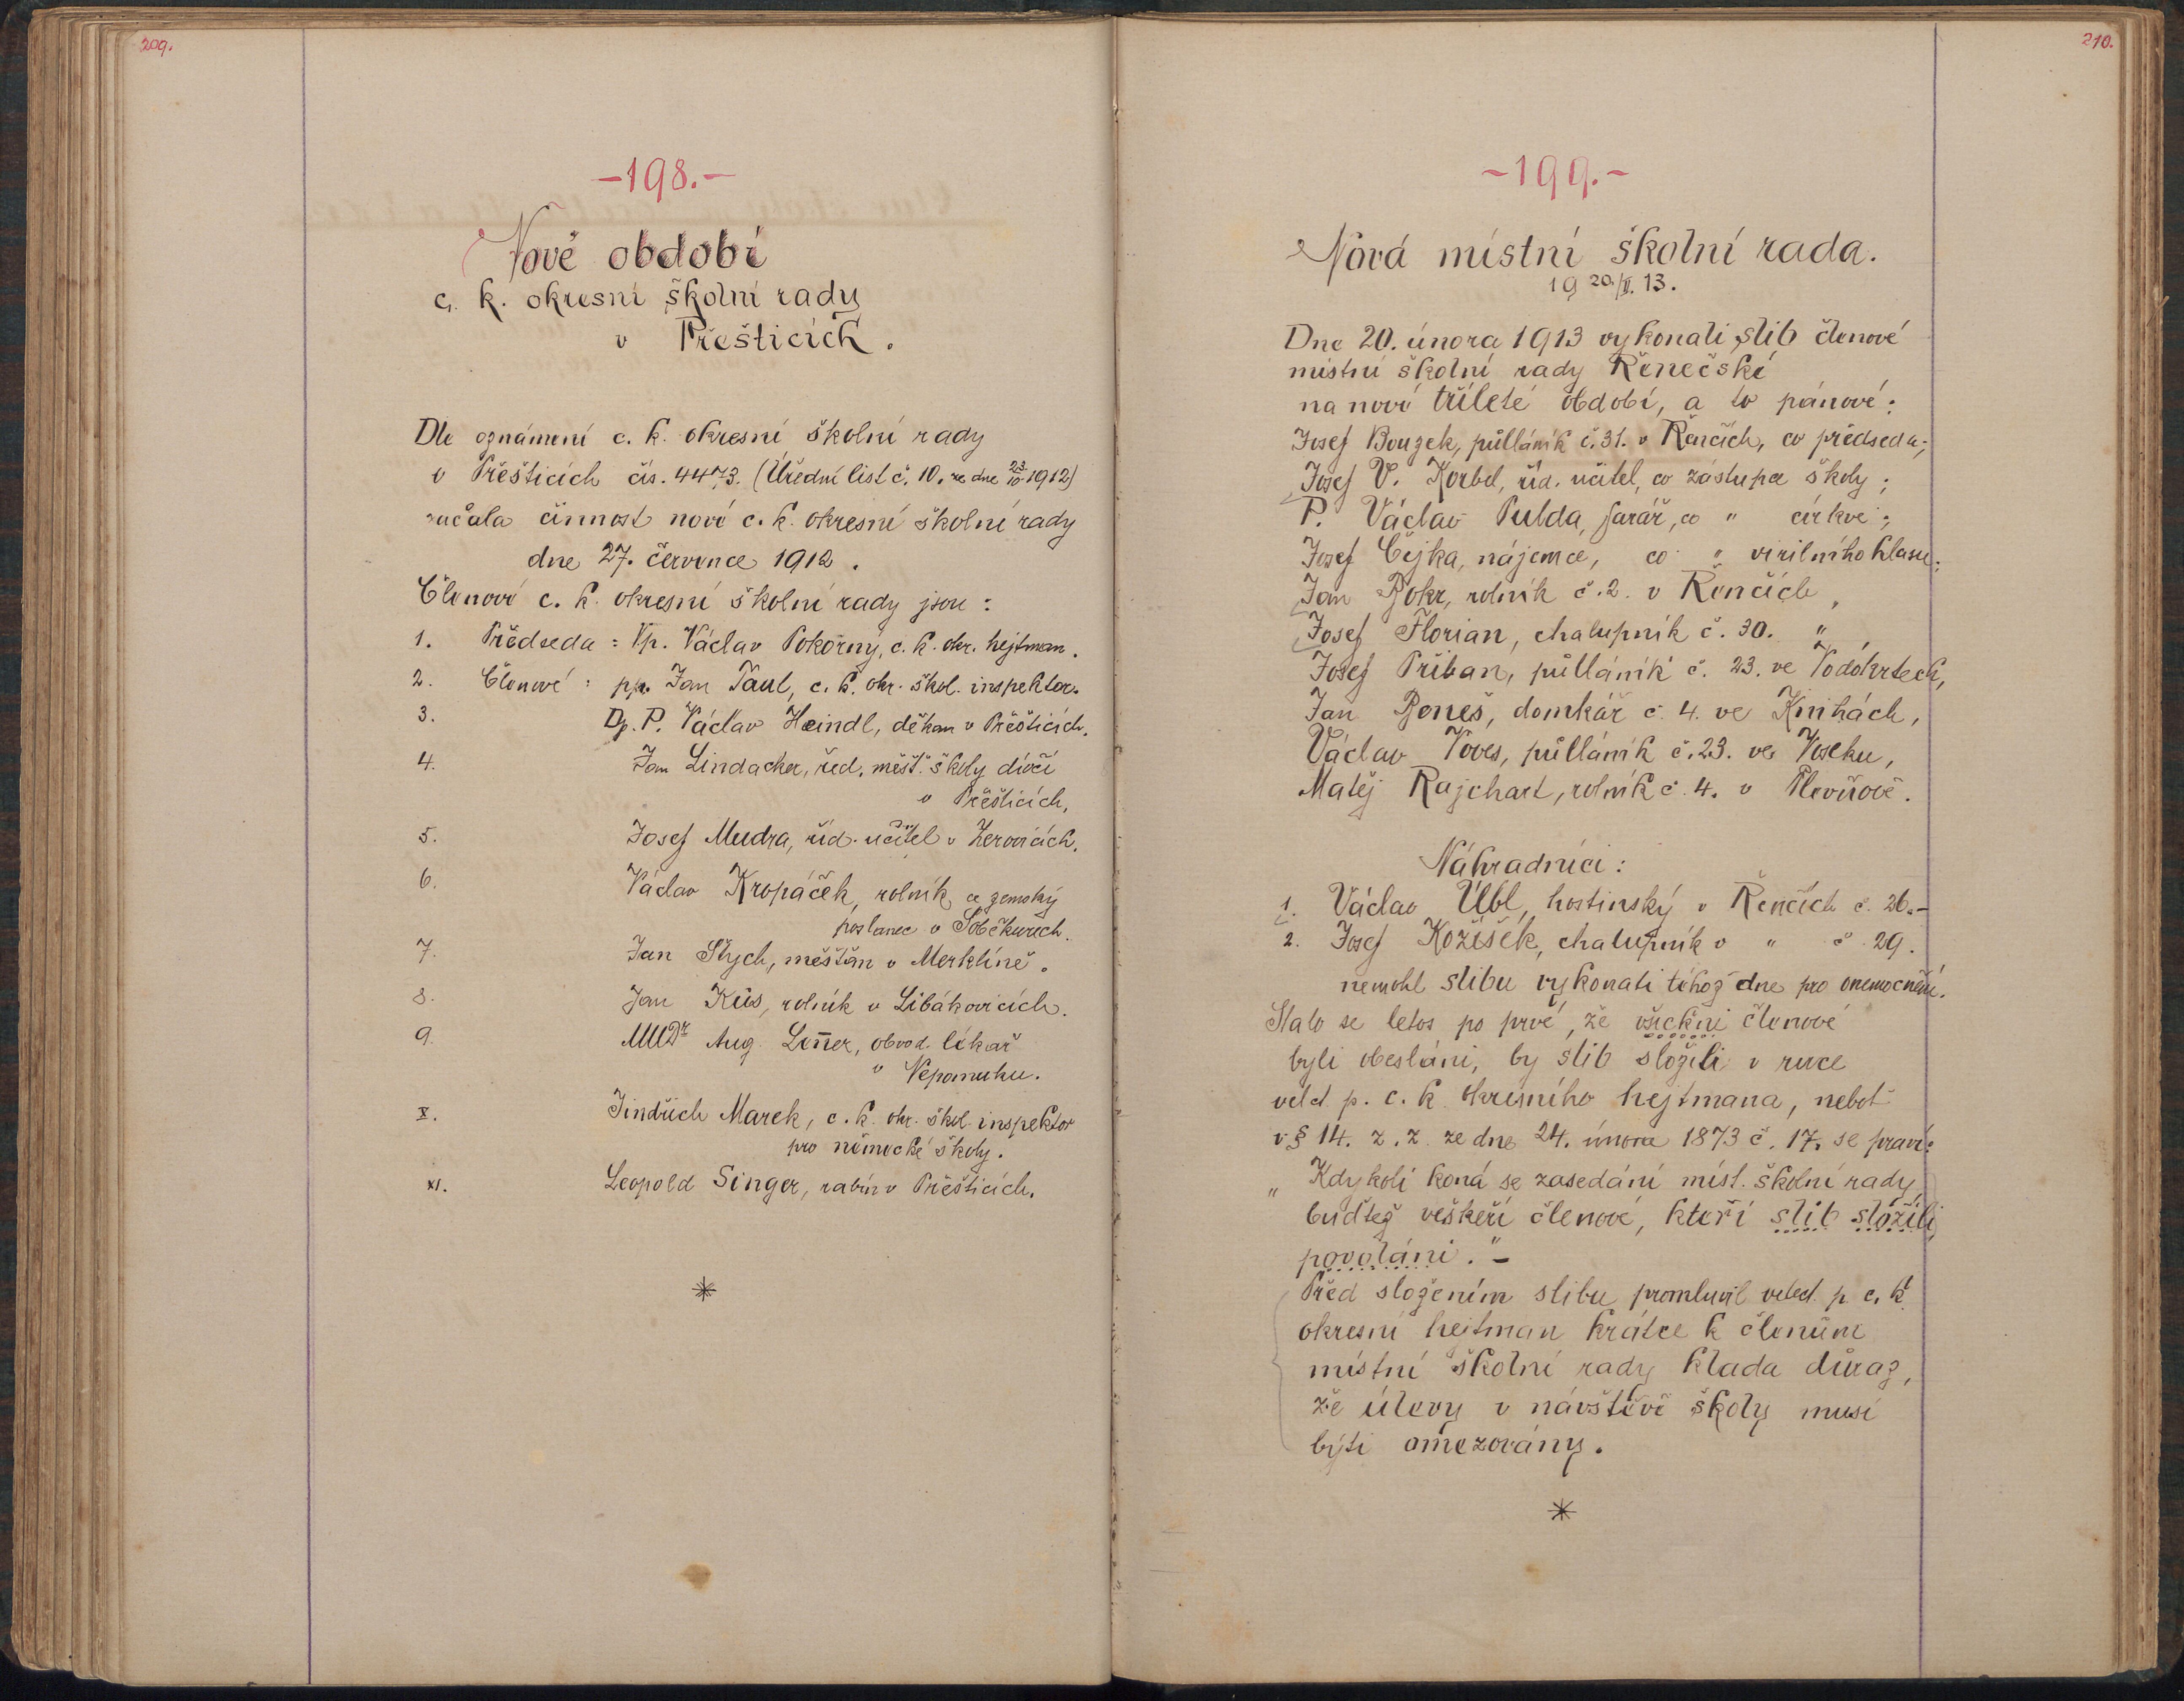 209.
-198.-
Nové období
c. k. okresní školní rady
v Přešticích.
Dle oznámení c. k. okresní školní rady
v Přešticích čís. 4473. (Úřední list č. 10. ze dne 23/10 1912)
začala činnost nové c. k. okresní školní rady
dne 27. července 1912.
Členové c. k. okresní školní rady jsou:
1. Předseda = Vp. Václav Pokorný, c. k. okr. hejtman.
2. Členové: pp. Jan Taul, c. k. okr. škol. inspektor.
3. Dp. P. Václav Heindl, děkan v Přešticích.
4. Jan Lindacker, řed. měšť. školy dívčí
v Přešticích,
5. Josef Mudra, říd. učitel v Žerovicích.
6. Václav Kropáček, rolník a zemský
poslanec v Soběkurích.
7. Jan Štych, měšťan v Merklíně.
8. Jan Kůs, rolník v Libákovicích.
9. MUDr Aug. Len̄er, obvod. lékař
v Nepomuku.
X. Jindřich Marek, c. k. okr. škol. inspektor
pro německé školy.
XI. Leopold Singer, rabín v Přešticích.
210.
-199.-
Nová místní školní rada.
19 20./II. 13.
Dne 20. února 1913 vykonali slib členové
místní školní rady Řenečské
na nové tříleté období, a to pánové:
Josef Bouzek, půlláník č. 31. v Řenčích, co předseda;
Josef V. Korbel, říd. učitel, co zástupce školy;
P. Václav Pulda, farář, co " církve;
Josef Čejka, nájemce, co " virilního hlasu;
Jan Pokr, rolník č. 2. v Řenčích,
Josef Florian, chalupník č. 30. " ,
Josef Přiban, půlláník č. 23. ve Vodokrtech,
Jan Beneš, domkář č. 4. ve Knihách,
Václav Voves, půlláník č. 23. ve Voseku,
Matěj Rajchart, rolník č. 4. v Plevňově.
Náhradníci:
1. Václav Úbl, hostinský v Řenčích č. 26.-
2. Josef Kožíšek, chalupník v " č. 29.
nemohl slibu vykonati téhož dne pro onemocnění.
Stalo se letos po prvé, že všickni členové
byli obesláni, by slib složili v ruce
veled. p. c. k. okresního hejtmana, neboť
v § 14. z. z. ze dne 24. února 1873 č. 17. se praví:
„Kdykoli koná se zasedání míst. školní rady,
buďtež veškeří členové, kteří slib složili,
povoláni."-
Před složením slibu promluvil veled. p. c. k.
okresní hejtman krátce k členům
místní školní rady klada důraz,
že úlevy v návštěvě školy musí
býti omezovány.